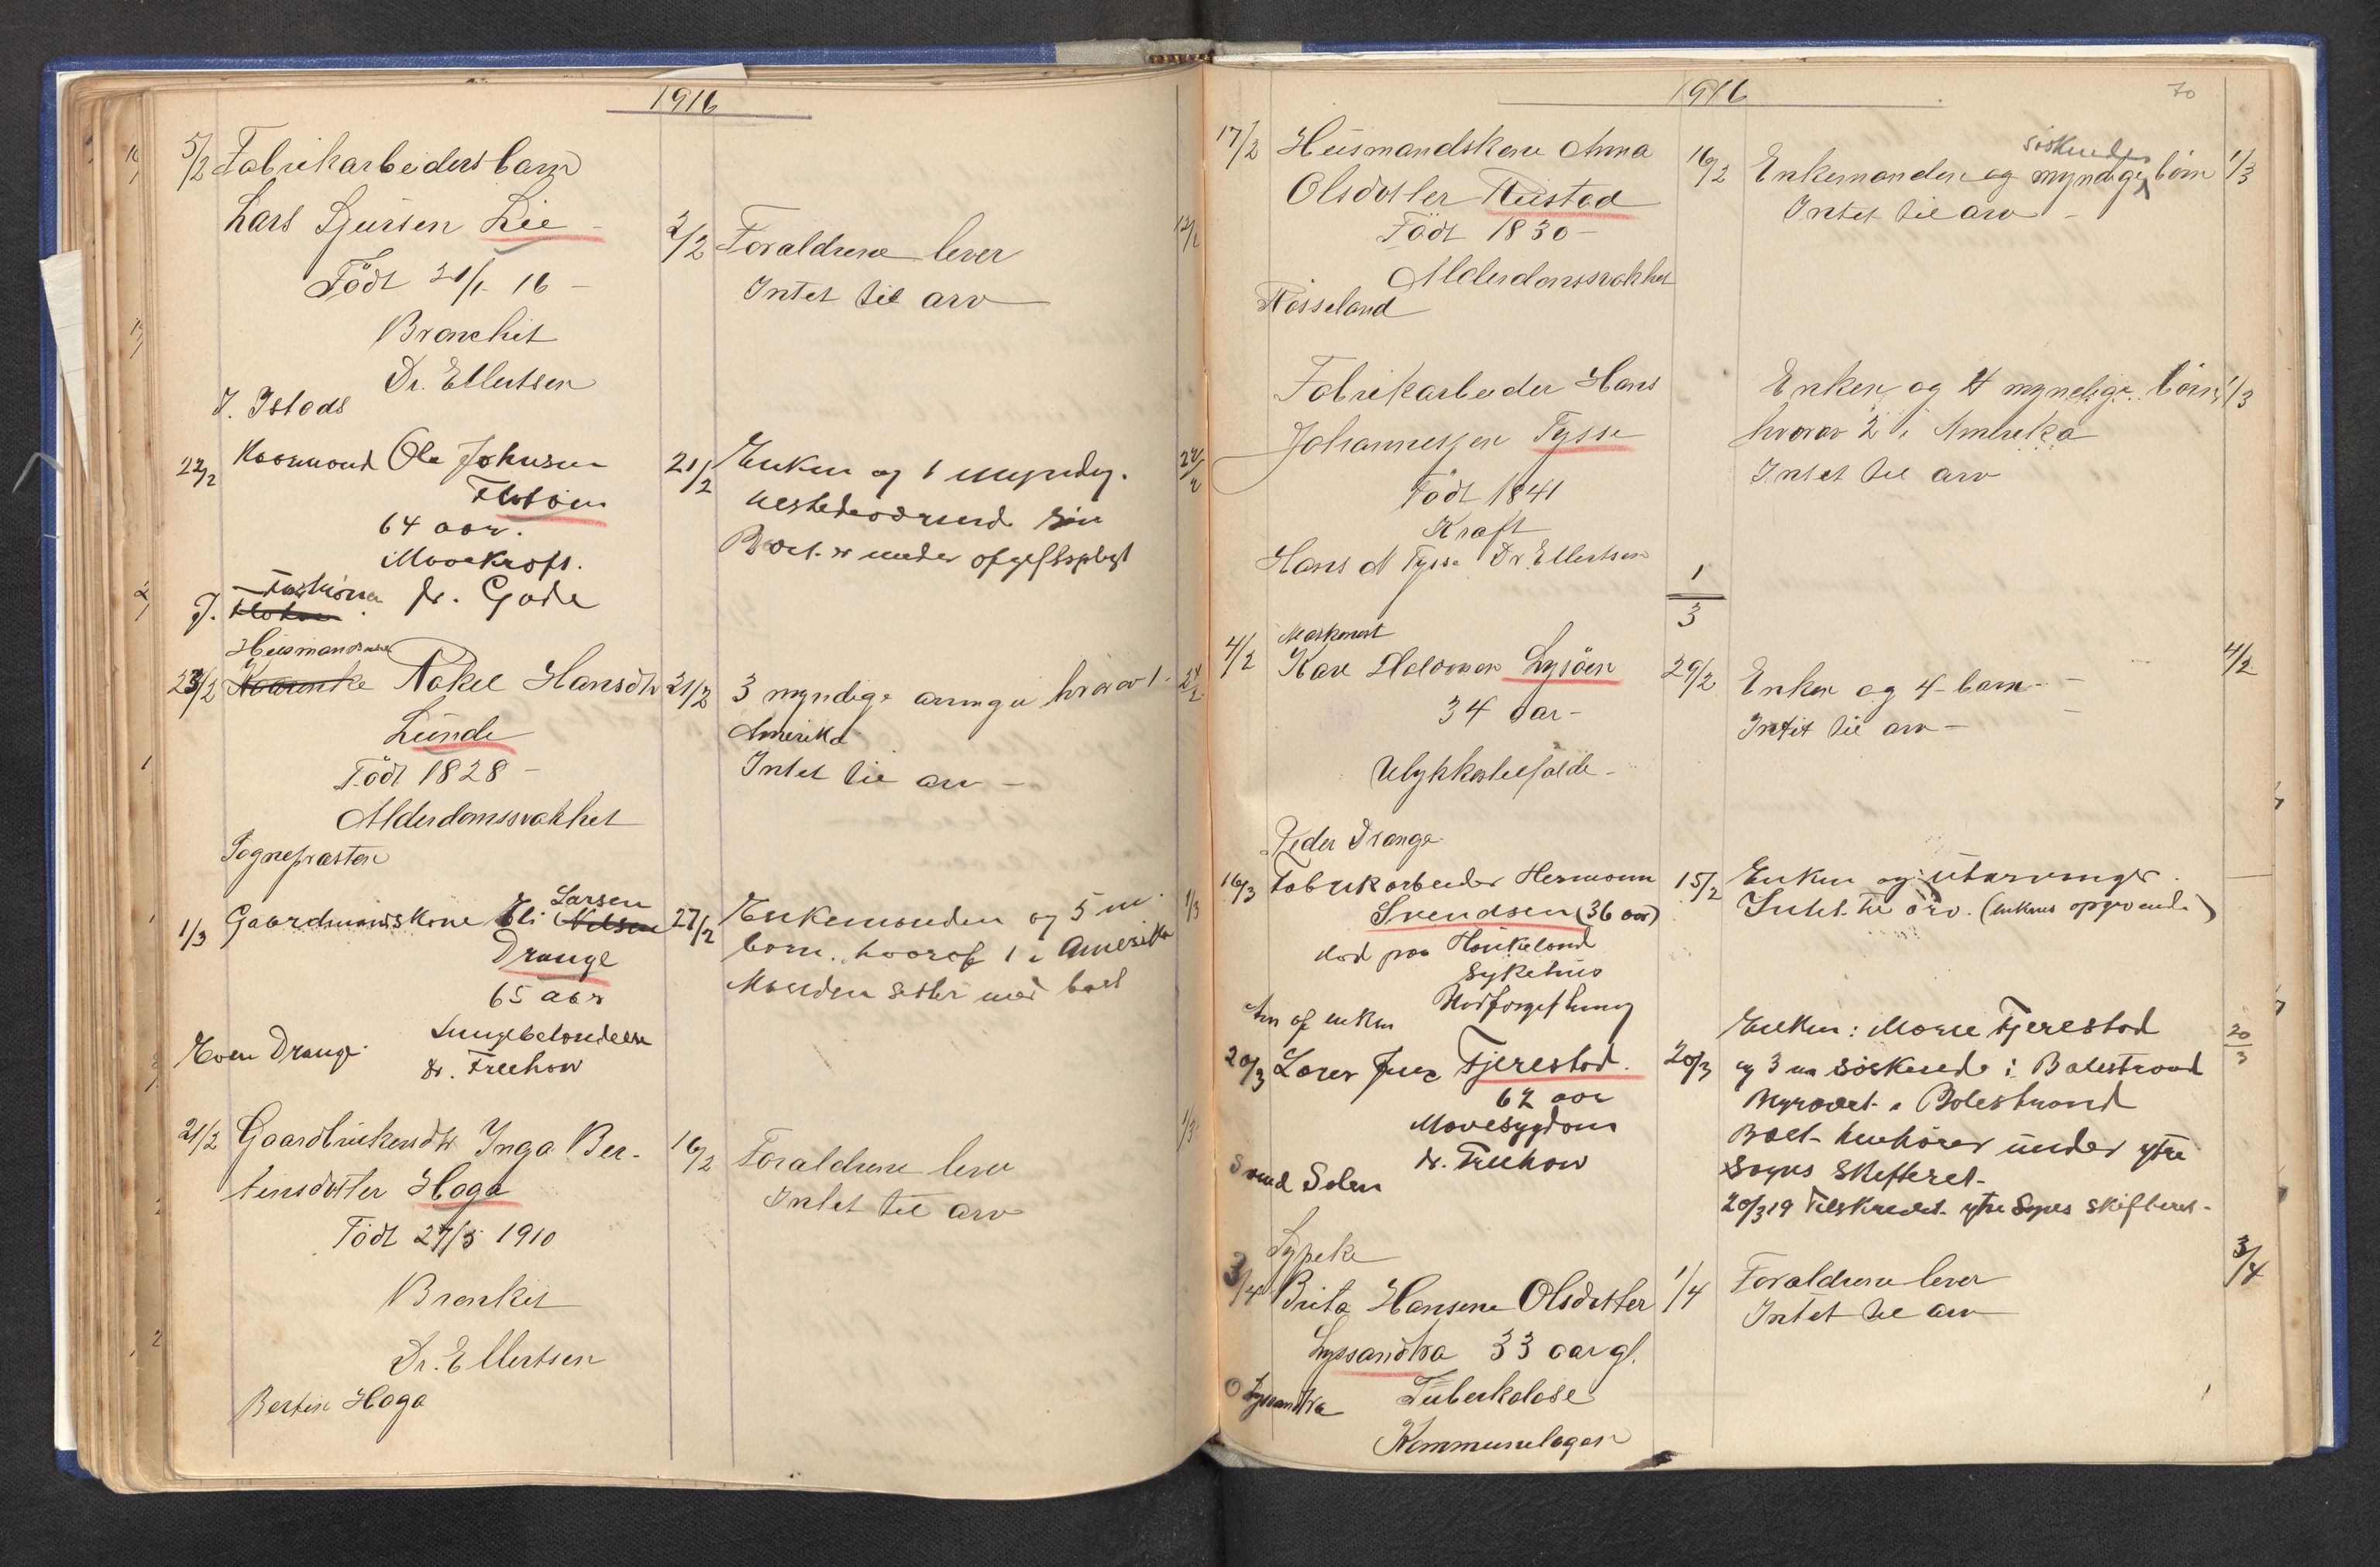 1916
5/2 Fabrikarbeiders barn
Lars Sjursen Lie -
Födt 21/1 16 -
Bronchit
Dr. Ellertsen
J. Istads
2/2 Forældrene lever
Intet til arv
12/2
22/2 Kaarmand Ole Johnsen
Flotöen
64 aar.
Mavekræft.
dr. Gade
J.
21/2 Enken og 1 myndig.
uestedeværende sön
Boet er under opgjeftspligt
22/2
Husmandsenke
23/2 Kaarenke Rakel Hansdtr
Lunde
Födt 1828 -
Alderdomssvakhet
Sognepræsten
21/2 3 myndige arvinger hvorav 1
Amerika
Intet til arv -
24/2
Larsen
1/3 Gaardmandskone Eli Nilsen
Drange
65 aar
Lungebetændelse
dr. Treehow
Even Drange
27/2 Enkemanden og 5 m.
barn, hvoraf 1 i Amerika
Manden sitter med boet
1/3
21/2 Gaardbrukersdtr Inga Ber-
tinsdotter Haga
Födt 27/5 1910
Bronkit
Dr. Ellertsen
Bertin Haga
16/2 Forældrene lever
Intet til arv
1/3
1916
70
17/2 Husmandskone Anna
Olsdotter Rustad
Födt 1830 -
Alderdomssvakhet
Røsseland
söskende
16/2 Enkemanden og myndige börn 1/3
Intet til arv -
Fabrikarbeider Hans
Johannesjen Tysse
Födt 1841
Kræft
Hans M Tysse Dr. Ellertsen
1/3
Enken og 4 myndige börn 1/3
hvorav 2 i Amerika
Intet til arv
Maskinist
4/2 Kare Halvorsen Lysöen
34 aar -
Ulykkestilfælde -
Peder Drange
29/2 Enken og 4 barn -
Intet til arv -
4/2
16/3 Fabrikarbeider Hermann
Svendsen (36 aar)
död paa Haukeland
Sykehus
Blodforgiftning
An af enken
15/2 Enken og utarvinger.
Intet til arv. (enkens opgivende)
20/3 Lars Jens Tjerestad.
62 aar
Mavesygdom
dr. Treehow
Svend Solen
20/3
Enken: Marie Tjerestad
og 3 m söskende i Balestrand
Myrævet i Balestrand
Boet henhörer under ytre
Sogns Skifteret.
20/3 19 Tilskrevet ytre Sogns skifteret -
20/3
Sypike
3/4 Brita Hansine Olsdotter
Lyssandtræ 33 aar gl.
Tuberkolose
Kommunelægen
O Lyssandtræ
1/4 Forældrene lever
Intet til arv
3/4